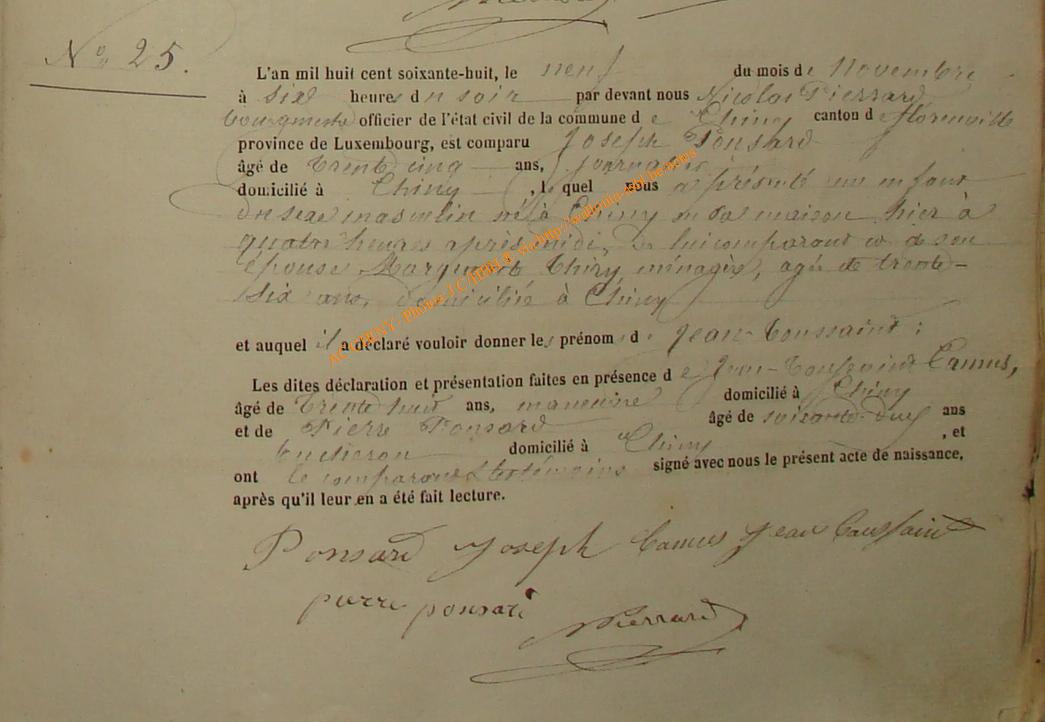 N° 25.
L'an mil huit cent soixante-huit, le neuf du mois de Novembre
à six heures du soir par devant nous Nicolas Pierrard
bourgmestre officier de l'état civil de la commune de Chiny canton de florenville
province de Luxembourg, est comparu Joseph Ponsard
âgé de trente cinq ans, journalier
domicilié à Chiny, lequel nous a présenté un enfant
du sexe masculin né à Chiny en sa maison hier à
quatre heures après midi, de lui comparant et de son
épouse Marguerite Thiry ménagère, agée de trente-
six ans, domiciliée à Chiny
et auquel il a déclaré vouloir donner les prénoms de Jean-Toussaint;
Les dites déclaration et présentation faites en présence de Jean-Toussaint Camus,
âgé de trente huit ans, manoeuvre domicilié à Chiny
et de Pierre Ponsard âgé de soixante-deux ans
bucheron domicilié à Chiny, et
ont le comparant & les témoins signé avec nous le présent acte de naissance,
après qu'il leur en a été fait lecture.
Ponsard Joseph Camus Jean Toussaint
pierre ponsard
Pierrard